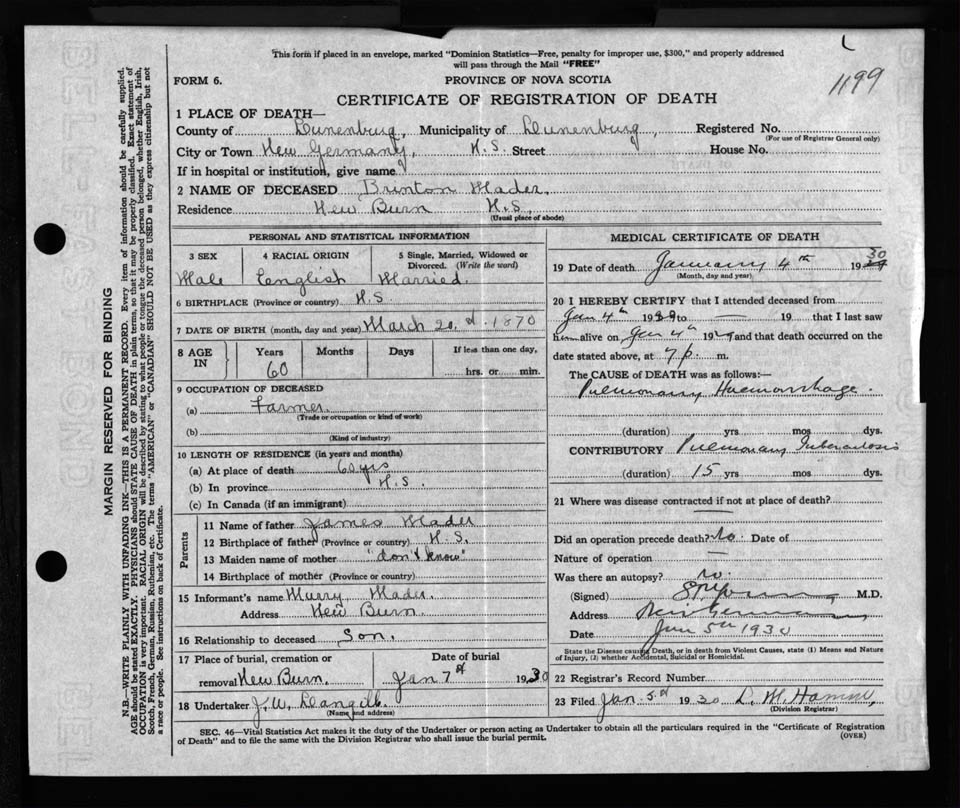 This form if placed in an envelope, marked "Dominion Statistics—Free, penalty for improper use, $300," and properly addressed
will pass through the Mail "FREE"
1199
FORM 6.
PROVINCE OF NOVA SCOTIA
CERTIFICATE OF REGISTRATION OF DEATH
1 PLACE OF DEATH—
County of Lunenburg, Municipality of Lunenburg, Registered No.
(For use of Registrar General only)
City or Town New Germany, N.S. Street House No.
If in hospital or institution, give name
2 NAME OF DECEASED Brinton Mader.
Residence New Burn N.S.
(Usual place of abode)
PERSONAL AND STATISTICAL INFORMATION
3 SEX 4 RACIAL ORIGIN 5 Single, Married, Widowed or Divorced. (Write the word)
Male English Married
6 BIRTHPLACE (Province or country) N.S.
7 DATE OF BIRTH (month, day and year) March 20. 1870
8 AGE IN Years Months Days If less than one day,
60 hrs. or min.
9 OCCUPATION OF DECEASED
(a) Farmer
(Trade or occupation or kind of work)
(b)
(Kind of industry)
10 LENGTH OF RESIDENCE (in years and months)
(a) At place of death 60 yrs
(b) In province N.S.
(c) In Canada (if an immigrant)
Parents
11 Name of father James Mader
12 Birthplace of father (Province or country) N.S.
13 Maiden name of mother "don't know"
14 Birthplace of mother (Province or country)
15 Informant's name Murry Mader.
Address New Burn.
16 Relationship to deceased Son.
17 Place of burial, cremation or Date of burial
removal New Burn. Jan 7 1930
18 Undertaker J.W.
(Name and address)
MEDICAL CERTIFICATE OF DEATH
19 Date of death January 4th 1930
(Month, day and year)
20 I HEREBY CERTIFY that I attended deceased from
Jan 4th 19 to — 19 that I last saw
him alive on Jan 4th 192 and that death occurred on the
date stated above, at 7 p. m.
The CAUSE of DEATH was as follows:—
Pulmonary Haemorrhage.
(duration) yrs mos dys.
CONTRIBUTORY Pulmonary Tuberculosis
(duration) 15 yrs mos dys.
21 Where was disease contracted if not at place of death?
—
Did an operation precede death? No Date of
Nature of operation —
Was there an autopsy? no.
(Signed) M.D.
Address New Germany
Date Jan 5th 1930
State the Disease causing Death, or in death from Violent Causes, state (1) Means and Nature
of Injury, (2) whether Accidental, Suicidal or Homicidal.
22 Registrar's Record Number
23 Filed Jan. 5 1930
(Division Registrar)
SEC. 46—Vital Statistics Act makes it the duty of the Undertaker or person acting as Undertaker to obtain all the particulars required in the "Certificate of Registration
of Death" and to file the same with the Division Registrar who shall issue the burial permit.
(OVER)
MARGIN RESERVED FOR BINDING
N.B.—WRITE PLAINLY WITH UNFADING INK—THIS IS A PERMANENT RECORD. Every item of information should be carefully supplied.
AGE should be stated EXACTLY. PHYSICIANS should STATE CAUSE OF DEATH in plain terms, so that it may be properly classified. Exact statement of
OCCUPATION is very important. RACIAL ORIGIN will be described by stating to what people or tongue the deceased person belonged, whether English, Irish,
Scotch, French, German, Russian, Ruthenian, etc. The terms "AMERICAN" or "CANADIAN" SHOULD NOT BE USED as they express citizenship but not
a race or people. See instructions on back of Certificate.